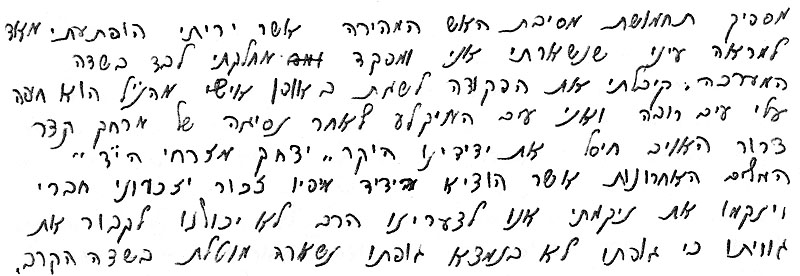 מספיק תחמושת מסיבת האש המהירה אשר יריתי הופתעתי מאוד
למראה עיני שנשארתי אני ומפקד מחלקתי לבד בשדה
המערכה. קיבלתי את הפקודה לשגת באופן אישי מהנ"ל הוא חפה
עלי עם רובה ואני עם המקלע לאחר נסיגה של מרחק קצר
צרור האויב חיסל את ידידינו היקר "יצחק מזרחי הי"ד"
המילים האחרונות אשר הוציא ידיד מפיו זכור יזכרוני חברי
וינקמו את ניקמתי אנו לצערינו הרב לא יכולנו לקבור את
גוויתו כי גופתו לא בנמצא גופתו נשארה מוטלת בשדה הקרב.